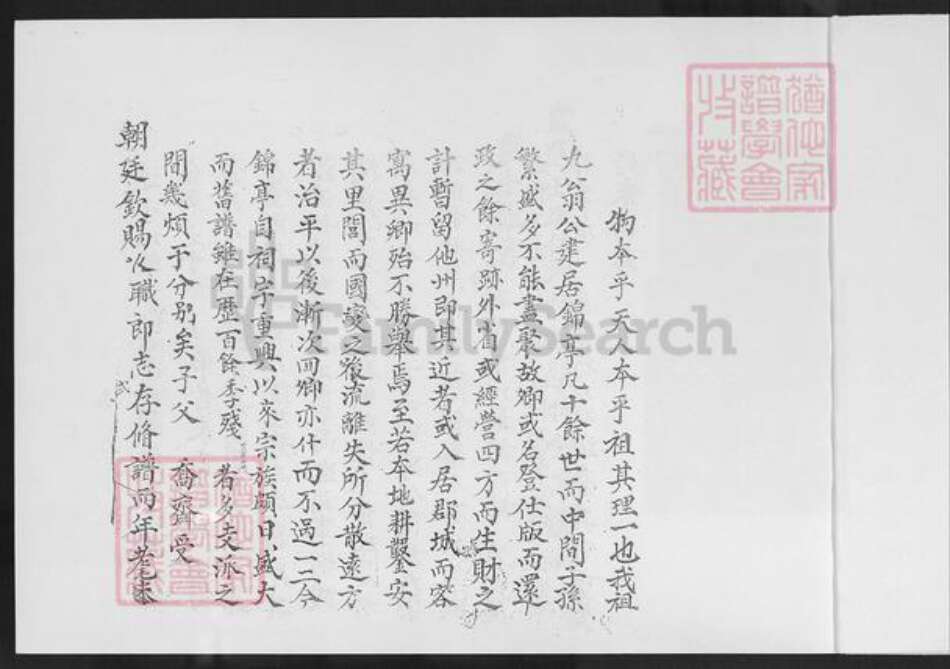 物本乎天人本乎祖其理一也我祖
九翁公建居錦亭凡十餘世而中間子孫
繁盛多不能盡聚故鄉或名登仕版而還
政之餘寄跡外省或經營四方而生財之
計暫留他州即其近者或入居郡城而容
寓異鄉殆不勝舉焉至若本地耕鑿安
其里閭而國變之後流離失所分散遠方
者治平以後漸次回鄉亦什而不過一二今
錦亭自祠宇重興以來宗族頗日盛大
而舊譜雖在歷百餘季殘 者多支派之
間幾煩于分别矣予父 喬齋受
朝廷欽賜 職郎志存脩譜而年老未
FamilySearch
譜學會
收藏